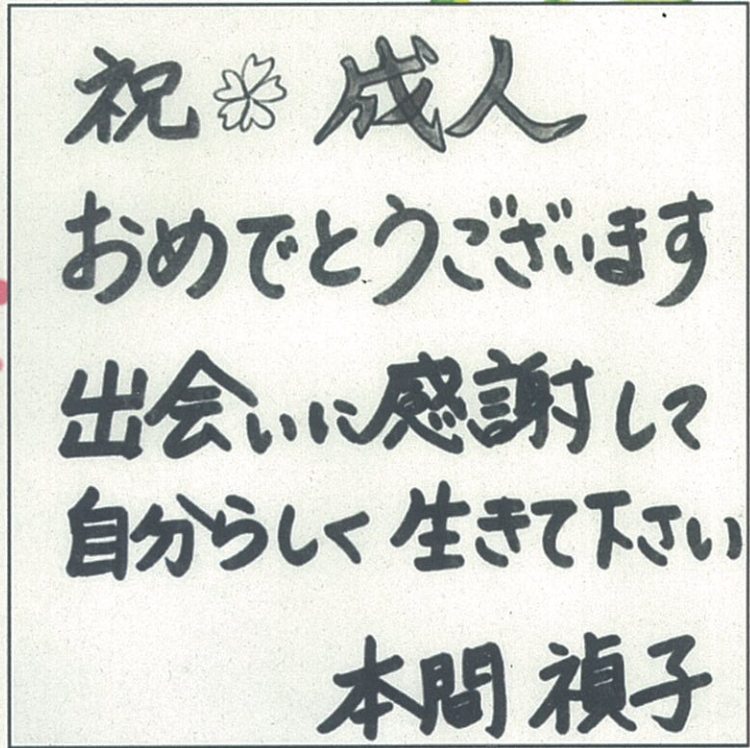 祝 成人
おめでとうございます
出会いに感謝して
自分らしく生きて下さい
本間 禎子